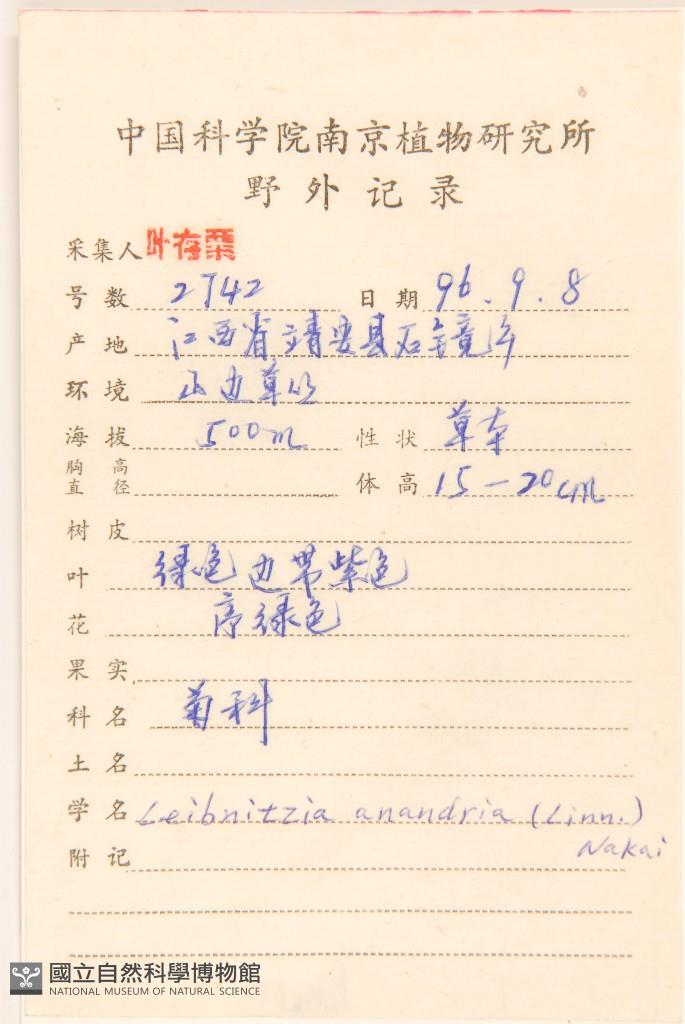 中国科学院南京植物研究所
野外记录
采集人 叶存粟
号数 2742 日期 96.9.8
产地 江西省靖安县石镜乡
环境 山边草丛
海拔 500m 性状 草本
胸高直径 体高 15-20cm
树皮
叶 绿色 边带紫色
花 序绿色
果实
科名 菊科
土名
学名 Leibnitzia anandria (Linn.)
Nakai
附记
國立自然科學博物館
NATIONAL MUSEUM OF NATURAL SCIENCE